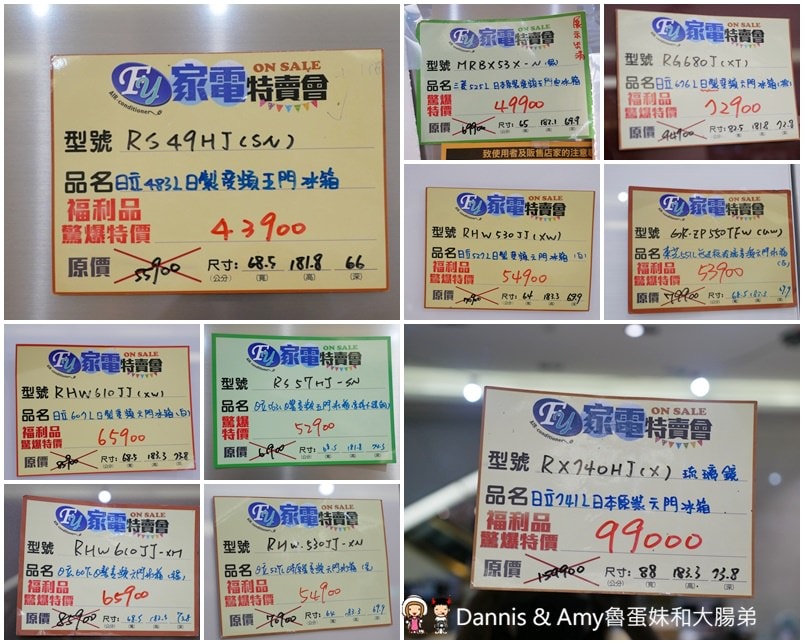 ON SALE
Fu 家電特賣會
AIR-conditioner
型號 RS49HJ(SN)
品名 日立483L日製變頻五門冰箱
福利品
驚爆特價 43900
原價 55900 尺寸: 68.5 181.8 66
(公分) (寬) (高) (深)
展示出清
ON SALE
Fu 家電特賣會
型號 MRBX53X-N(
品名 三菱525L日本原裝變頻六門冰箱
驚爆
特價 49900
原價 69900 尺寸: 65 182.1 69.9
致使用者及販售店家的注意
ON SALE
Fu 家電特賣會
型號 RG680J(XT)
品名 日立676L日製變頻六門冰箱
福利品
驚爆特價 72900
原價 94900 尺寸: 82.5 181.8 72.8
ON SALE
Fu 家電特賣會
型號 RHW530JJ(XW)
品名 日立527L日製變頻六門冰箱(白)
福利品
驚爆特價 54900
原價 尺寸: 64 183.3 69.9
ON SALE
Fu 家電特賣會
型號 GR-ZP550TFW(UW)
品名 東芝551L
福利品
驚爆特價 53900
原價 79900 尺寸: 68.5
ON SALE
Fu 家電特賣會
型號 RHW610JJ(XW)
品名 日立607L日製變頻六門冰箱(白)
福利品
驚爆特價 65900
原價 85900 尺寸: 68.5 183.3 73.8
ON SALE
Fu 家電特賣會
型號 RS57HJ-SN
品名 日立563L日製變頻五門冰箱
驚爆
特價 52900
原價 69900 尺寸: 68.5 181.8 74.3
ON SALE
Fu 家電特賣會
AIR-conditioner
型號 RX740HJ(X) 琉璃鏡
品名 日立741L日本原裝六門冰箱
福利品
驚爆特價 99000
原價 159900 尺寸: 88 183.3 73.8
(公分) (寬) (高) (深)
ON SALE
Fu 家電特賣會
型號 RHW610JJ-XH
品名 日立607L日製變頻六門冰箱
福利品
驚爆特價 65900
原價 85900 尺寸: 68.5 183.3 73.8
ON SALE
Fu 家電特賣會
型號 RHW-530JJ-XN
品名 日立527L日本原裝變頻六門冰箱
福利品
驚爆特價 54900
原價 76900 尺寸: 64 183.3 69.9
Dannis & Amy魯蛋妹和大腸弟